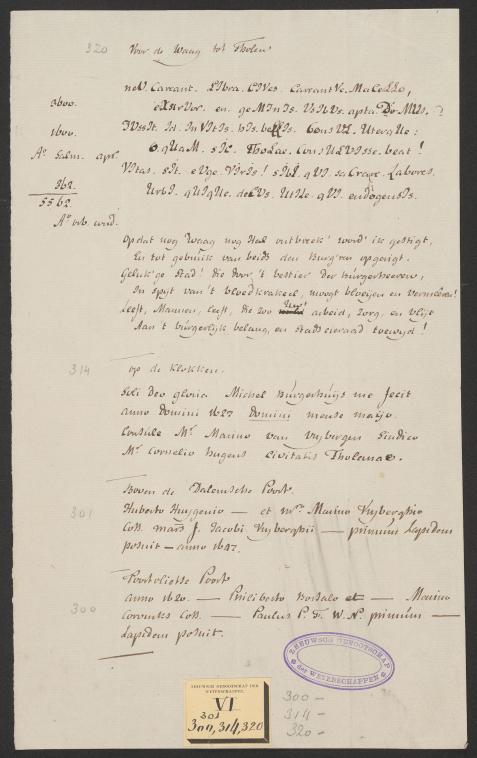 320 Voor de Waag tot Tholen
neV Careant. LIbra. CIVes. CareantVe. MaCeLLo,
3600. eXstrVor. en. geMInIs. VsIbVs. apta. DoMUs.
1600. IVssIt. Id. InVItIs. hIs. beLLIs. ConsUL. Uterque:
Ao Salm. apr. o. qUaM. sIC. ThoLae. ConsULVIsse. beat!
VItas. sIt. eVge. VIrIs! sIbI. qVI. saCrare. Labores.
362. UrbI. qUIqUe. deCVs. UtILe. qVI.
5562.
Opdat nog Waag nog Hal ontbreek' word' ik gestigt,
En tot gebruik van beids den Burg'ren opgerigt.
Geluk'ge Stad! die door 't bestier der Burgerheeren,
In spijt van 't bloedkrakeel, moogt bloeijen en vermeeren!
Leeft, Mannen, leeft, die zoo Uw' arbeid, zorg, en vlijt
Aan 't burgerlijk belang, en stads cieraad toewijd!
314 Op de klokken.
Soli Deo gloria Michel Burgerhuijs me fecit
anno domini 1627 domini mense maijo.
Consule Mr. Marino van Vijbergen Sindico
Mr. Cornelio Hugens Civitatis Tholenae.
Boven de Dalemsche Poort
301 Huberto Huijgenio — et Mro. Marino Vijberghio
Coss. mars J. Jacobi Vijberghii — primum Lapidem
posuit – anno 1647.
Poortvlietse Poort
anno 1620. — Philiberto et — Marino
300 Coss. — Paulus P. F. W. N. primum —
Lapidem posuit.
ZEEUWSCH GENOOTSCHAP
der WETENSCHAPPEN
ZEEUWSCH GENOOTSCHAP DER
WETENSCHAPPEN
VI
301
300, 314, 320
300 –
314 –
320 –